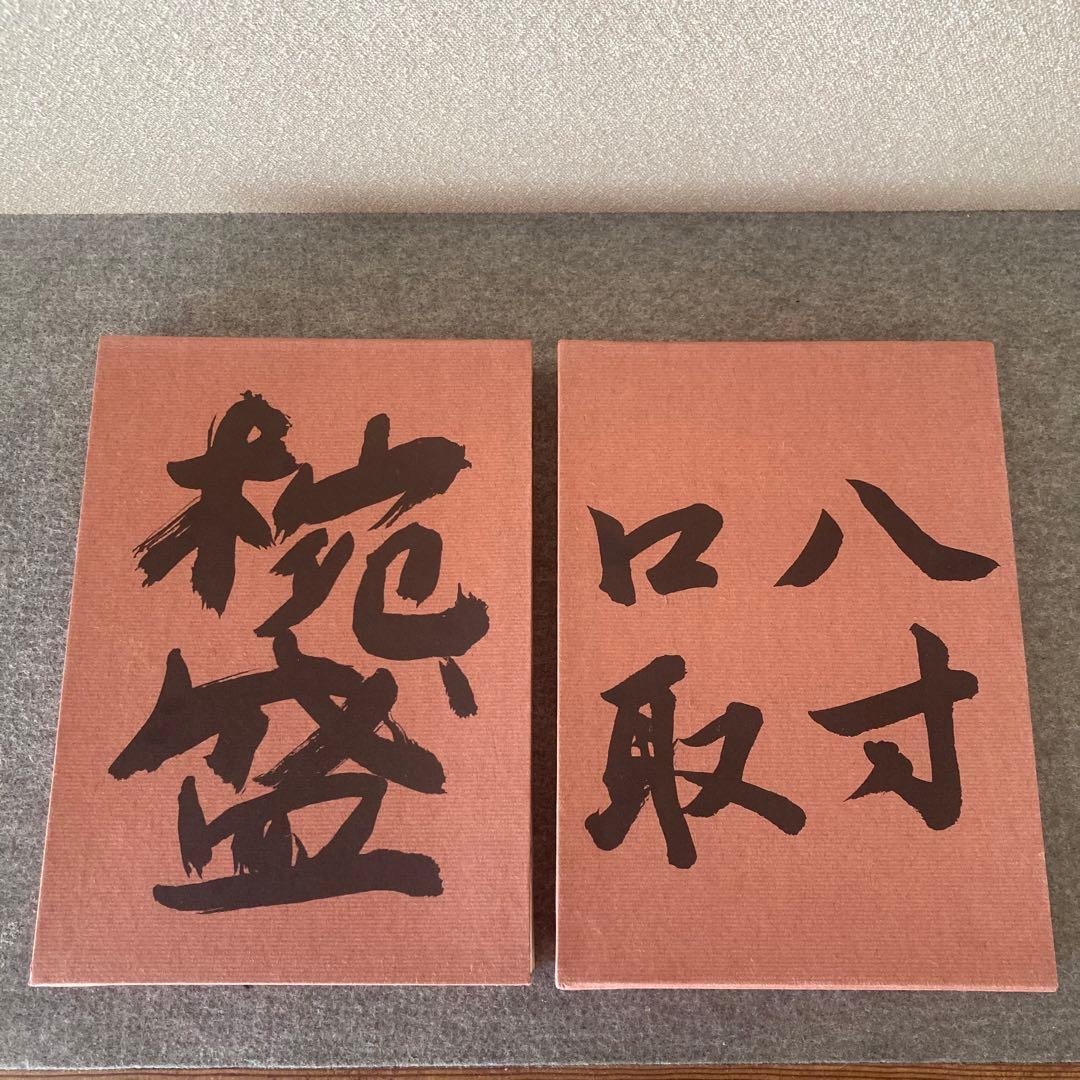 椀盛
八寸
口取